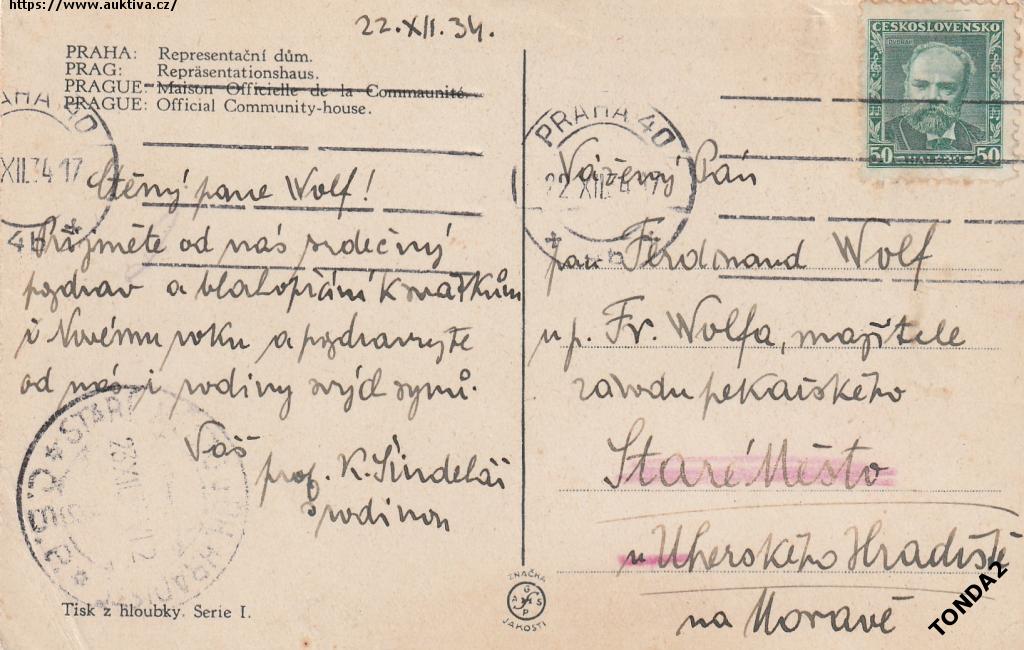 https://www.auktiva.cz/
22.XII.34.
PRAHA: Representační dům.
PRAG: Repräsentationshaus.
PRAGUE: Maison Officielle de la Communauté.
PRAGUE: Official Community-house.
ČESKOSLOVENSKO
DVOŘÁK
50 HALÉŘŮ 50
PRAHA 40
XII.34 17
4b
PRAHA 40
22.XII.34 17
Ctěný pane Wolf!
Přijměte od nás srdečný
pozdrav a blahopřání k svátkům
i Novému roku a pozdravujte
od nás i rodiny svých synů.
Váš
prof. K. Šindelář
s rodinou
Vážený Pán
pan Ferdinand Wolf
u p. Fr. Wolfa, majitele
závodu pekařského
Staré Město
u Uherského Hradiště
na Moravě
STARÉ
HRADIŠTĚ
Tisk z hloubky. Serie I.
ZNAČKA
JAKOSTI
TONDA2